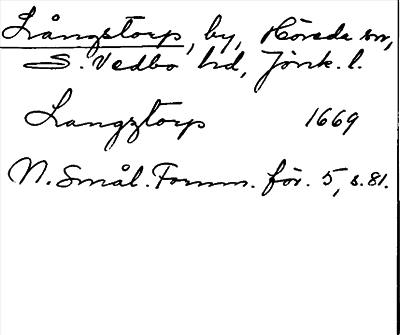 Långstorp, by, Höreda sn,
S. Vedbo hd, Jönk. l.
Langztorp 1669
N. Smål. Fornm. för. 5, s. 81.